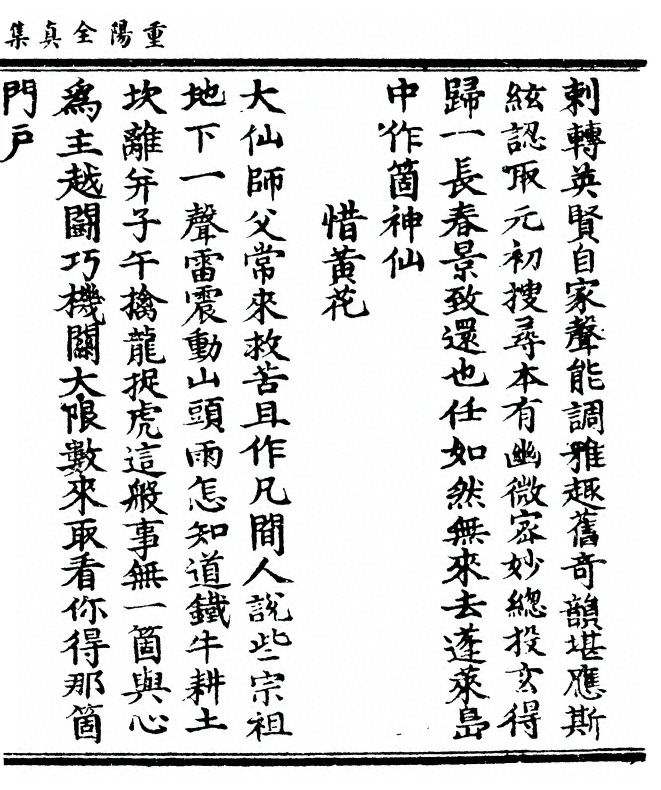 重陽全真集
刺轉英賢自家聲能調雅趣舊奇韻堪應斯
絃認取元初搜尋本有幽微密妙總投玄得
歸一長春景致還也任如然無來去蓬萊島
中作箇神仙
惜黃花
大仙師父常來救苦且作凡間人說些宗祖
地下一聲雷震動山頭雨怎知道鐵牛耕土
坎離弁子午擒龍捉虎這般事無一箇與心
為主越鬪巧機關大限數來取看你得那箇
門戶